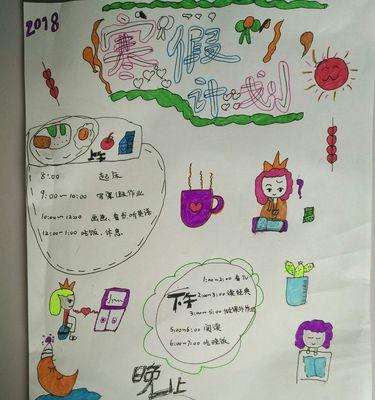 2018
寒假
计划
上午
8:00 起床
9:00~10:00 写寒假作业
10:00~12:00 画画、看书、听英语
12:00~1:00 吃饭、休息
下午
1:00~2:00 看TV
2:00~3:00 读经典
3:00~5:00
5:00~6:00 阅读
6:00~7:00 吃晚饭
晚上